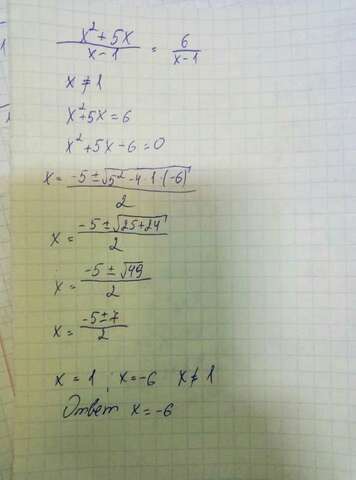 (x²+5x)/(x-1) = 6/(x-1)
x≠1
x²+5x=6
x²+5x-6=0
x=(-5±√(5²-4·1·(-6)))/2
x=(-5±√(25+24))/2
x=(-5±√49)/2
x=(-5±7)/2
x=1; x=-6 x≠1
Ответ x=-6